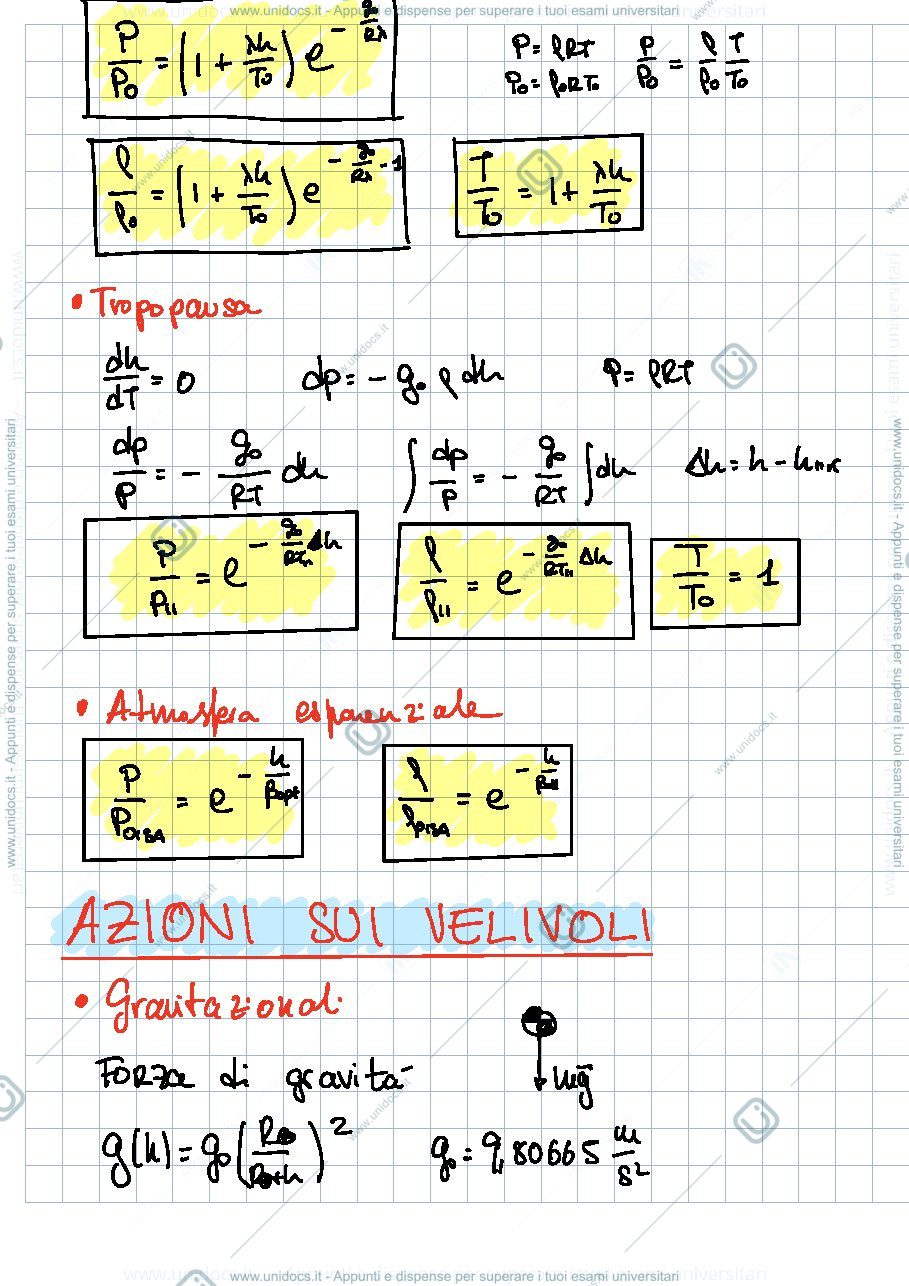 www.unidocs.it - Appunti e dispense per superare i tuoi esami universitari
P/P₀ = (1 + λh/T₀) e^(- g₀/Rλ)
P = ρRT
P₀ = ρ₀RT₀
P/P₀ = ρ/ρ₀ T/T₀
ρ/ρ₀ = (1 + λh/T₀) e^(- g₀/Rλ - 1)
T/T₀ = 1 + λh/T₀
• Tropopausa
dh/dT = 0
dp = - g₀ ρ dh
P = ρRT
dp/P = - g₀/RT dh
∫ dp/P = - g₀/RT ∫ dh
Δh = h - h
P/P₁₁ = e^(- g₀/RT₁₁ Δh)
ρ/ρ₁₁ = e^(- g₀/RT₁₁ Δh)
T/T₀ = 1
• Atmosfera esponenziale
P/P₀ISA = e^(- h/βopt)
ρ/ρ₀ISA = e^(- h/β)
AZIONI SUI VELIVOLI
• Gravitazionali
Forza di gravità
mg̅
g(h) = g₀ (R⊕/(R⊕+h))²
g₀ = 9,80665 m/s²
www.unidocs.it - Appunti e dispense per superare i tuoi esami universitari